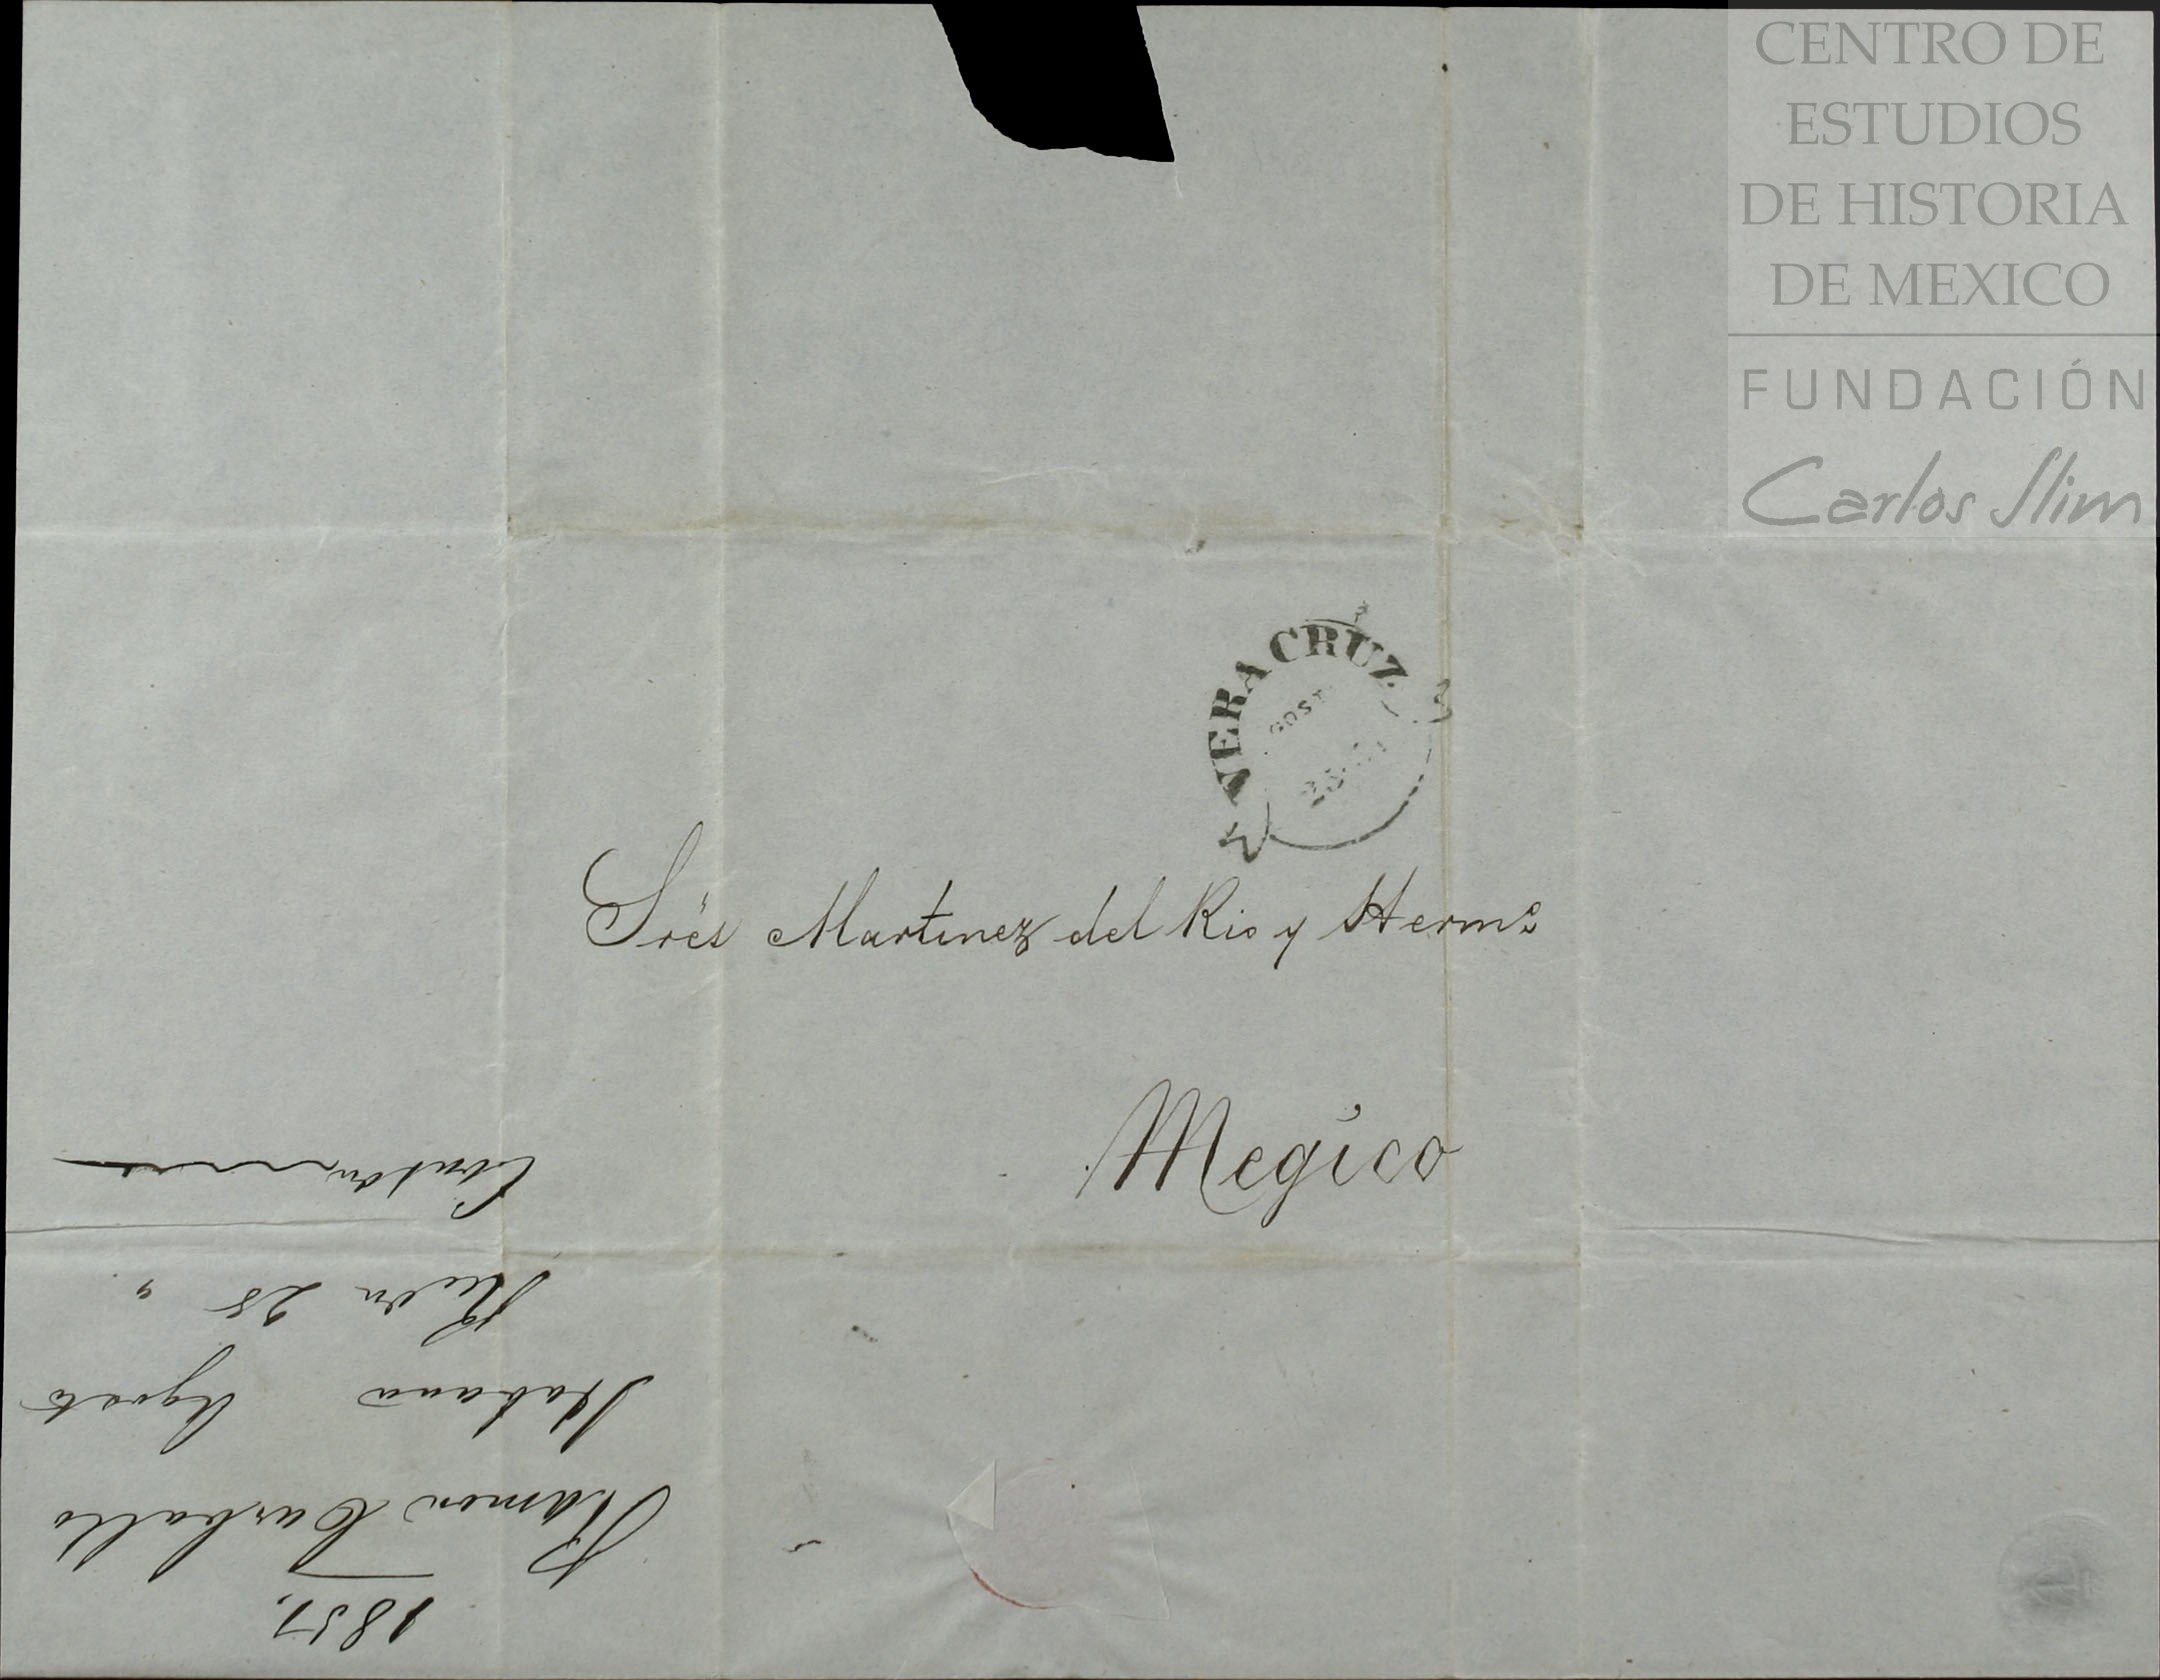 CENTRO DE
ESTUDIOS
DE HISTORIA
DE MEXICO
FUNDACIÓN
Carlos Slim
VERA CRUZ
GOST
Sres Martinez del Rio y Herms
Megico
1857.
Ramon Carballo
Habana Agosto
28 "